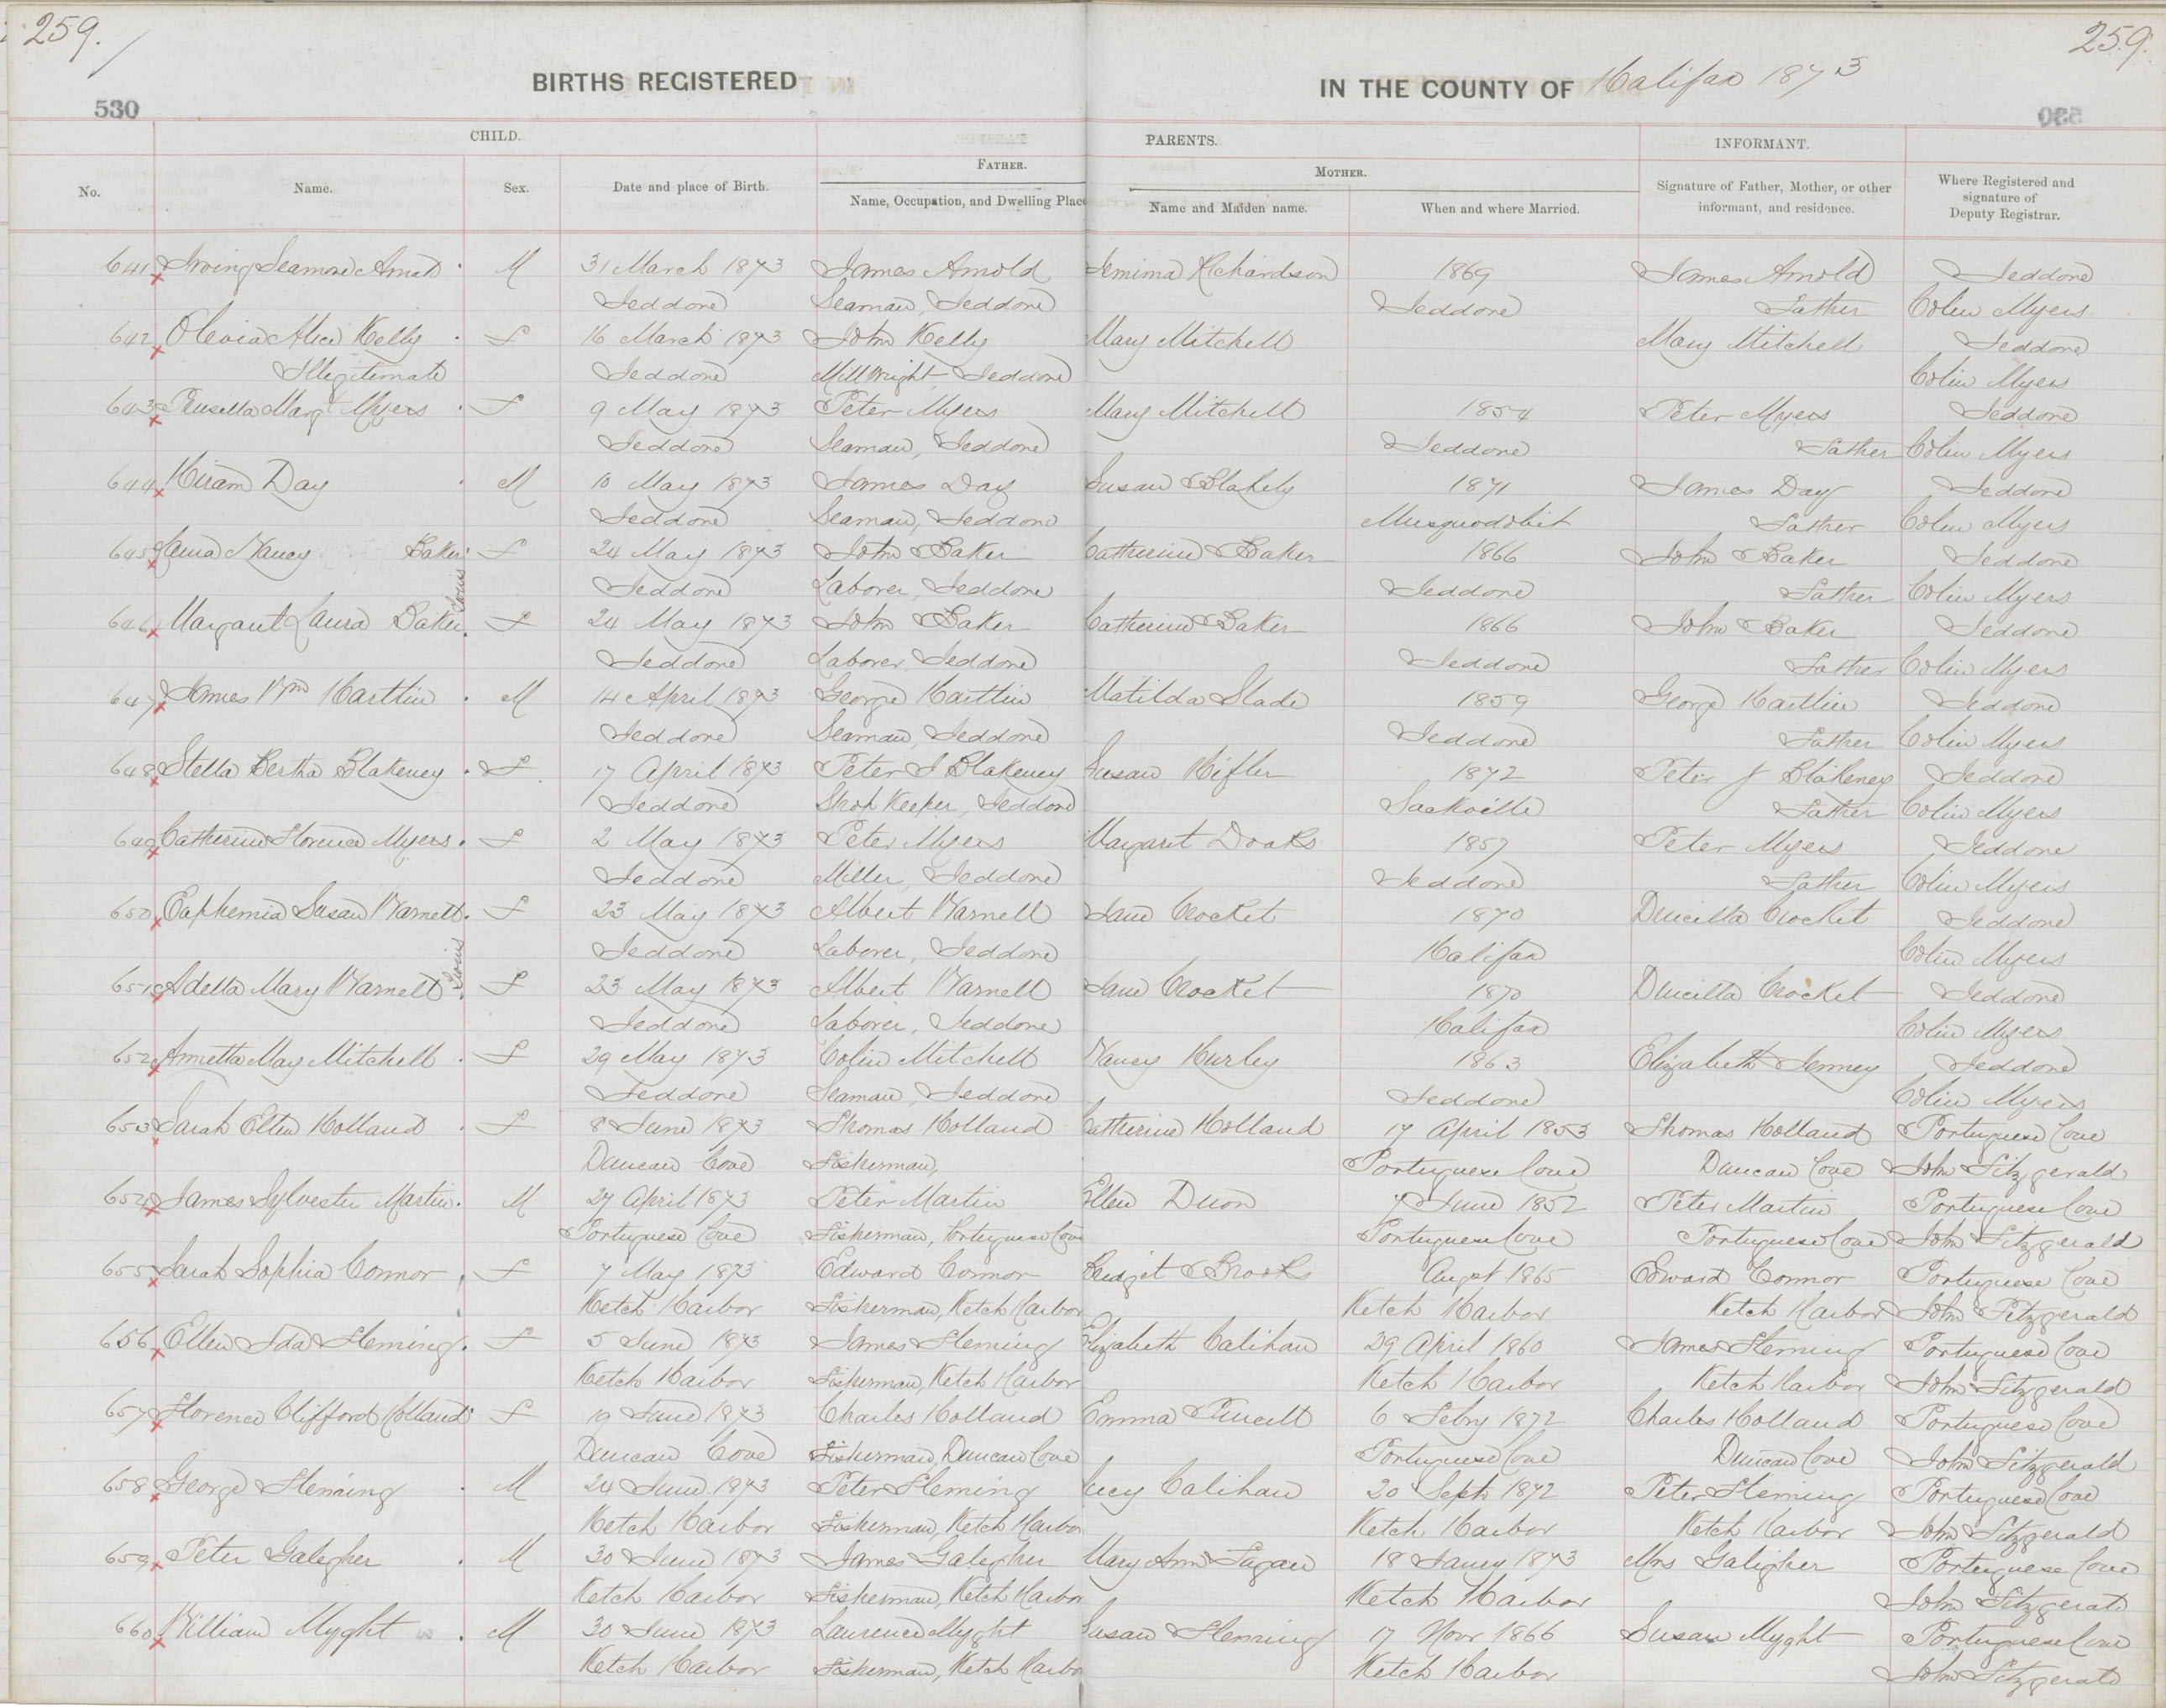 259.
259.
BIRTHS REGISTERED IN THE COUNTY OF Halifax 1873
530
CHILD. PARENTS. INFORMANT.
FATHER. MOTHER.
No. Name. Sex. Date and place of Birth. Name, Occupation, and Dwelling Place Name and Maiden name. When and where Married. Signature of Father, Mother, or other informant, and residence. Where Registered and signature of Deputy Registrar.
641 Irving Seamore Arnold M 31 March 1873 James Arnold Jemima Richardson 1869 James Arnold Jeddore
Jeddore Seaman, Jeddore Jeddore Father Colin Myers
642 Olevia Alice Kelly F 16 March 1873 John Kelly Mary Mitchell Mary Mitchell Jeddore
Illigitimate Jeddore Millwright, Jeddore Colin Myers
643 Margt Myers F 9 May 1873 Peter Myers Mary Mitchell 1854 Peter Myers Jeddore
Jeddore Seaman, Jeddore Jeddore Father Colin Myers
644 Hiram Day M 10 May 1873 James Day Susan Blakely 1871 James Day Jeddore
Jeddore Seaman, Jeddore Musquodobit Father Colin Myers
645 Nancy Baker F 24 May 1873 John Baker Catherine Baker 1866 John Baker Jeddore
Jeddore Laborer, Jeddore Jeddore Father Colin Myers
646 Margaret Laura Baker F 24 May 1873 John Baker Catherine Baker 1866 John Baker Jeddore
Jeddore Laborer, Jeddore Jeddore Father Colin Myers
647 James Wm Hartlin M 14 April 1873 George Hartlin Matilda Slade 1859 George Hartlin Jeddore
Jeddore Seaman, Jeddore Jeddore Father Colin Myers
648 Stella Bertha Blakeney F 17 April 1873 Peter J Blakeney Susan Hifler 1872 Peter J Blakeney Jeddore
Jeddore Shop Keeper, Jeddore Sackville Father Colin Myers
649 Catherine Florence Myers F 2 May 1873 Peter Myers Margaret Doaks 1857 Peter Myers Jeddore
Jeddore Miller, Jeddore Jeddore Father Colin Myers
650 Euphemia Susan Warnell F 23 May 1873 Albert Warnell Jane Crocket 1870 Drucilla Crocket Jeddore
Jeddore Laborer, Jeddore Halifax Colin Myers
651 Adella Mary Warnell F 23 May 1873 Albert Warnell Jane Crocket 1870 Drucilla Crocket Jeddore
Jeddore Laborer, Jeddore Halifax Colin Myers
652 Annetta May Mitchell F 29 May 1873 Colin Mitchell Nancy Hurley 1863 Elizabeth Jenney Jeddore
Jeddore Seaman, Jeddore Jeddore Colin Myers
653 Sarah Ellen Holland F 8 June 1873 Thomas Holland Catherine Holland 17 April 1853 Thomas Holland Portuguese Cove
Duncan Cove Fisherman, Portuguese Cove Duncan Cove John Fitzgerald
654 James Sylvester Martin M 27 April 1873 Peter Martin Ellen Dixon 7 June 1852 Peter Martin Portuguese Cove
Portuguese Cove Fisherman, Portuguese Cove Portuguese Cove Portuguese Cove John Fitzgerald
655 Sarah Sophia Connor F 7 May 1873 Edward Connor Bridget Brooks Augst 1865 Edward Connor Portuguese Cove
Ketch Harbor Fisherman, Ketch Harbor Ketch Harbor Ketch Harbor John Fitzgerald
656 Ellen Ida Fleming F 5 June 1873 James Fleming Elizabeth Calihan 29 April 1860 James Fleming Portuguese Cove
Ketch Harbor Fisherman, Ketch Harbor Ketch Harbor Ketch Harbor John Fitzgerald
657 Florence Clifford Holland F 19 June 1873 Charles Holland Emma Purcell 6 Febry 1872 Charles Holland Portuguese Cove
Duncan Cove Fisherman, Duncan Cove Portuguese Cove Duncan Cove John Fitzgerald
658 George Fleming M 24 June 1873 Peter Fleming Lucy Calihan 20 Sept 1872 Peter Fleming Portuguese Cove
Ketch Harbor Fisherman, Ketch Harbor Ketch Harbor Ketch Harbor John Fitzgerald
659 Peter Galegher M 30 June 1873 James Galegher Mary Ann Fagan 18 Jany 1873 Mrs Galigher Portuguese Cove
Ketch Harbor Fisherman, Ketch Harbor Ketch Harbor John Fitzgerald
660 William Myght M 30 June 1873 Laurence Myght Susan Fleming 17 Novr 1866 Susan Myght Portuguese Cove
Ketch Harbor Fisherman, Ketch Harbor Ketch Harbor John Fitzgerald